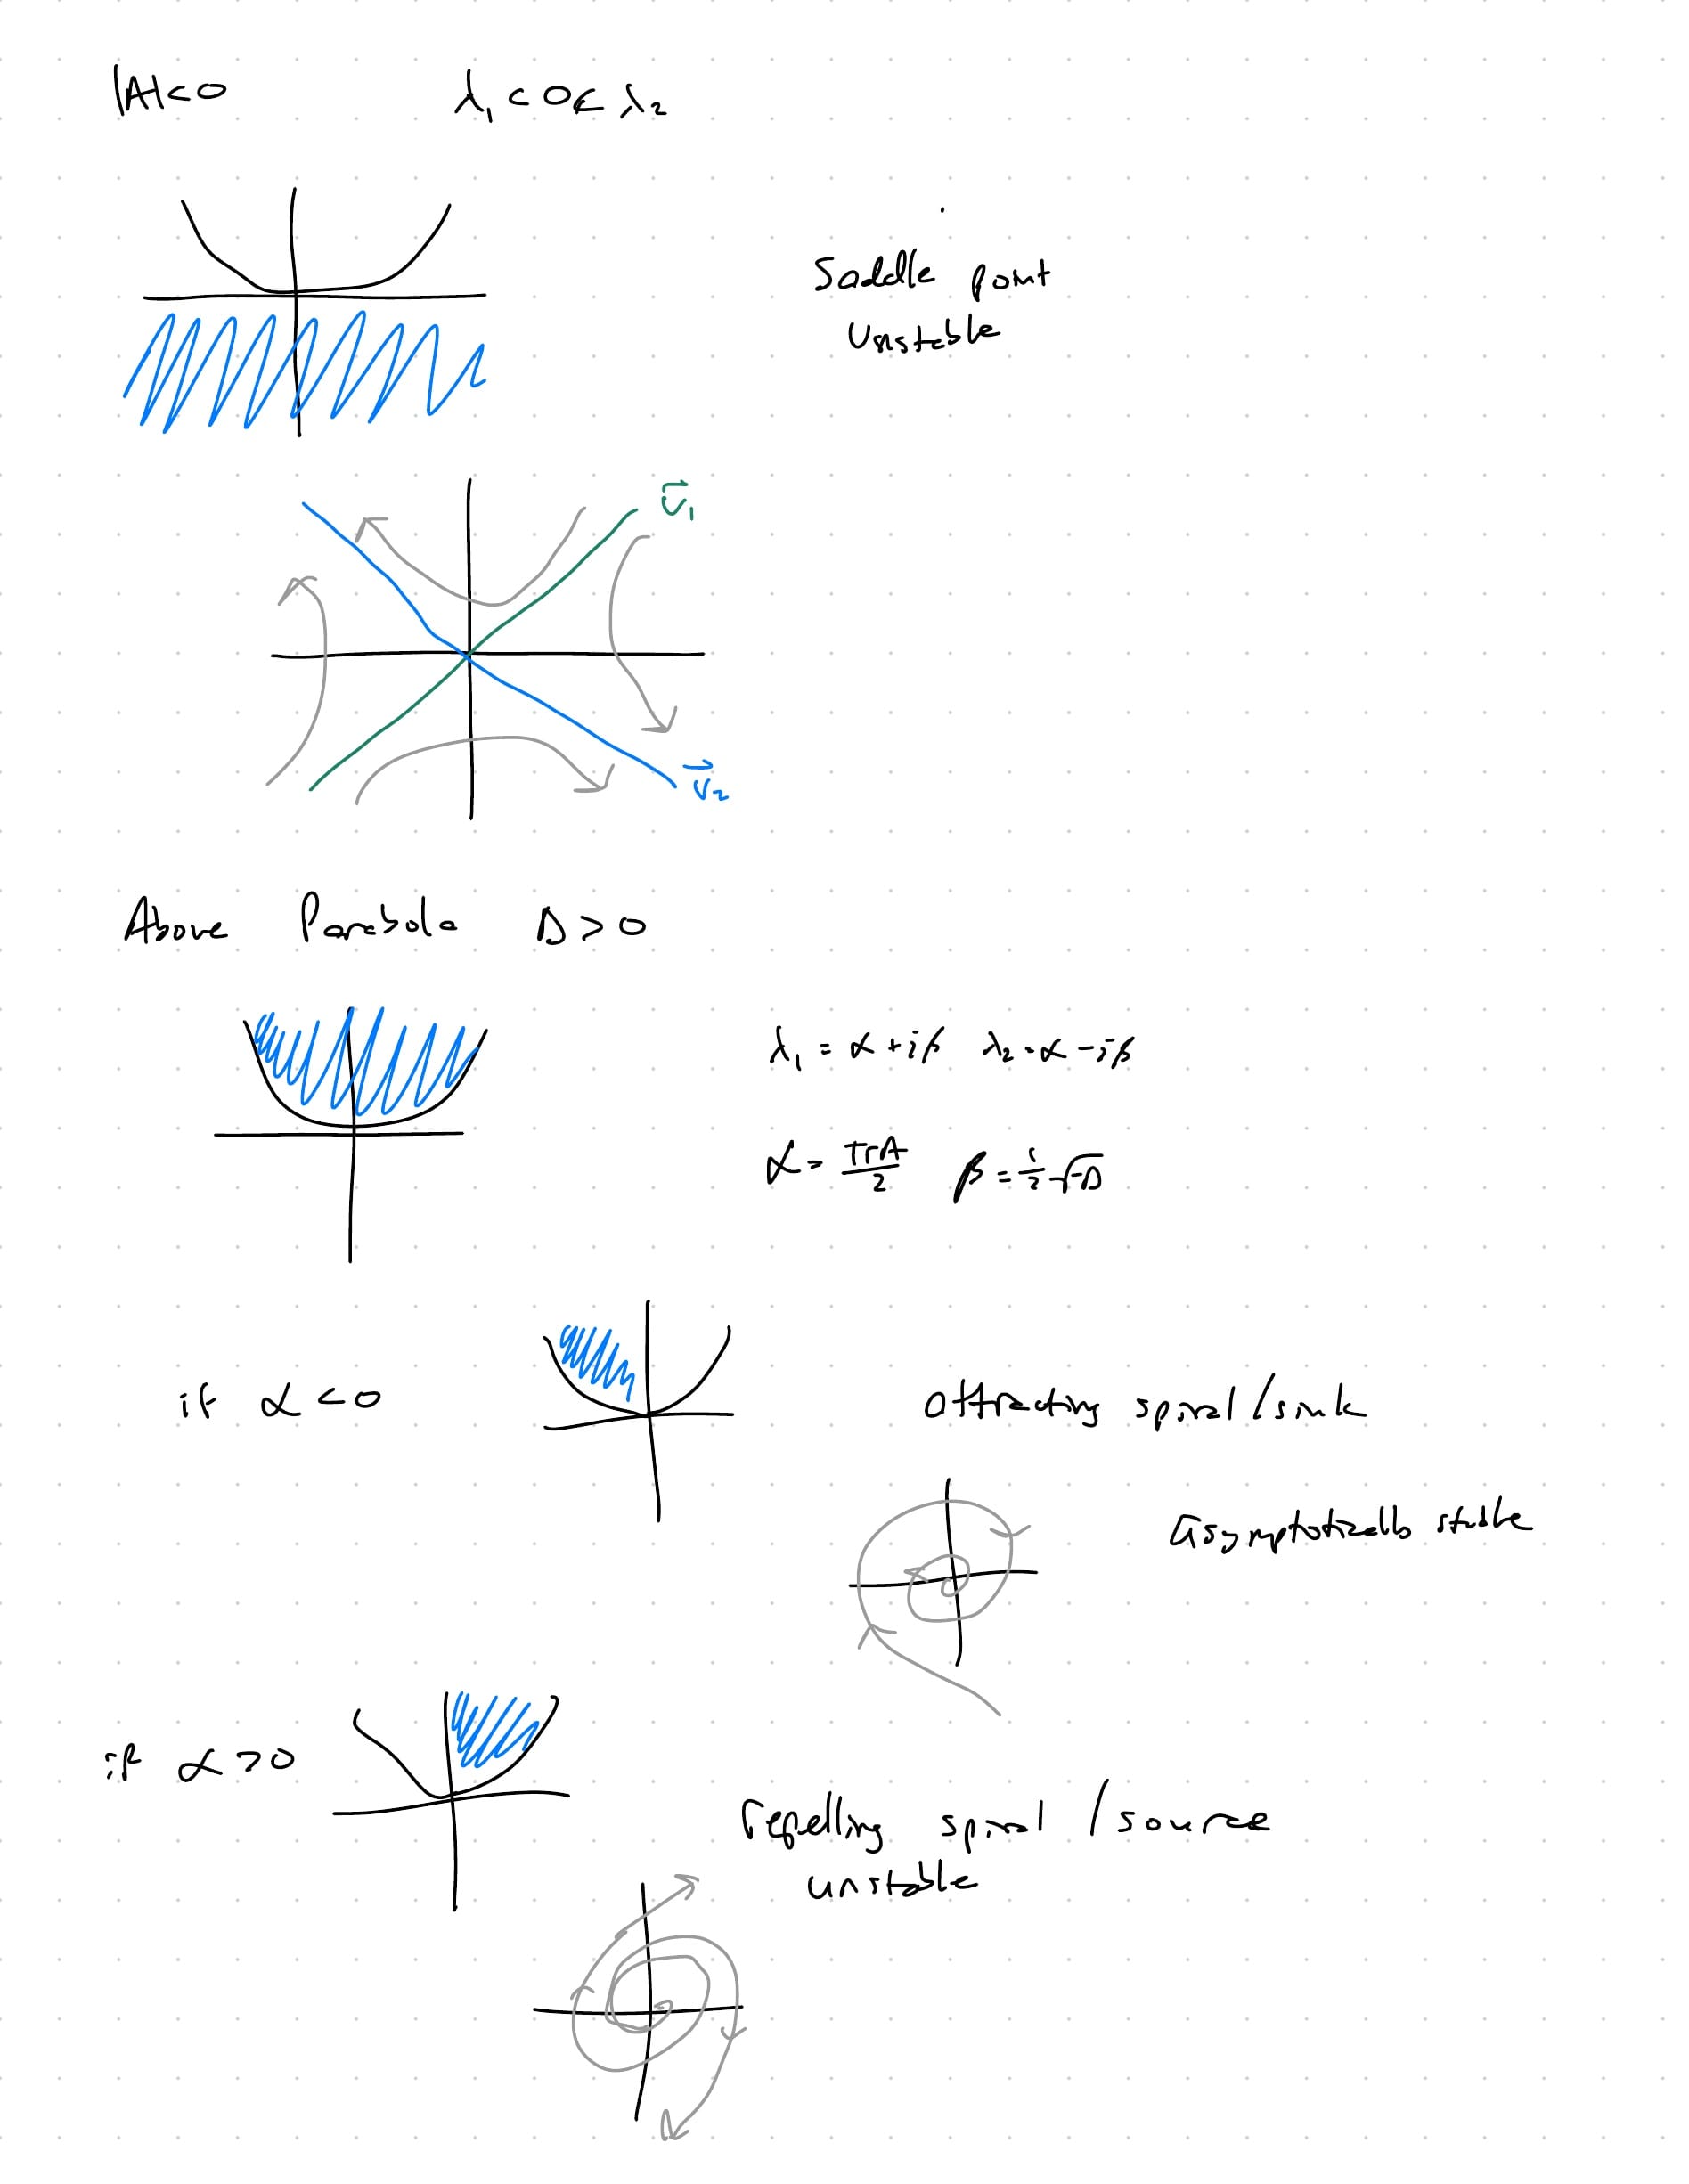 |A|<0 λ₁<0<λ₂
Saddle point
Unstable
v⃗₁
v⃗₂
Above Parabola D>0
λ₁ = α + iβ λ₂ = α - iβ
α = TrA/2 β = 1/2 √-D
if α<0
attracting spiral/sink
asymptotically stable
if α>0
repelling spiral / source
unstable